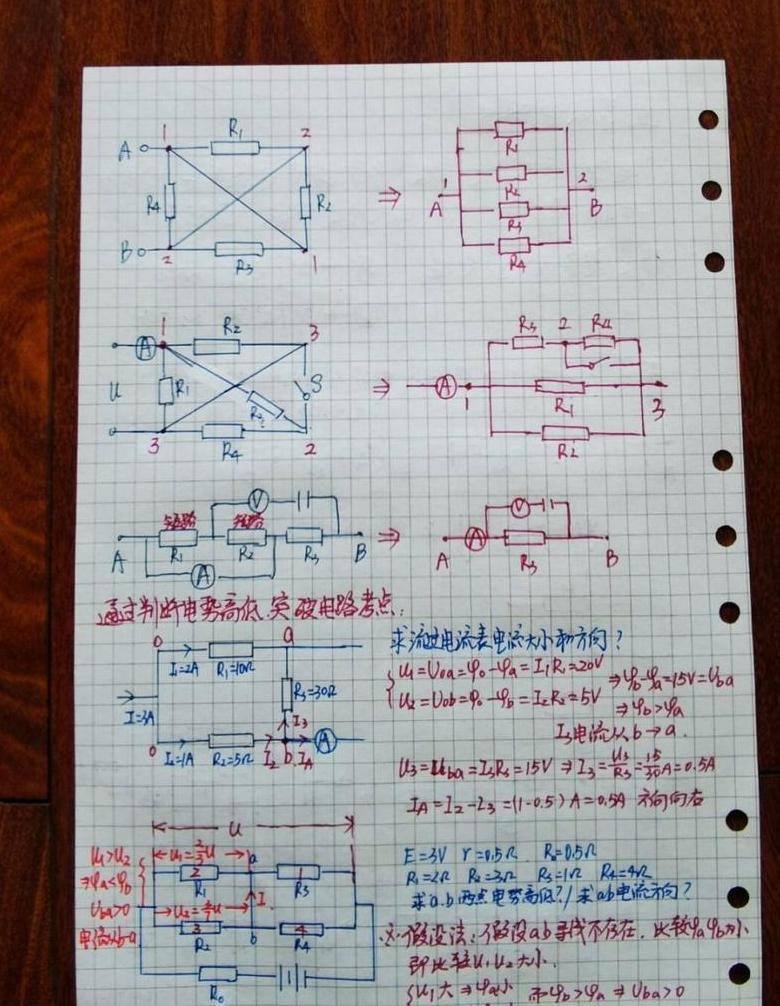 1 R₁ 2
A
R₄ R₂
B
2 R₃ 1
⇒
R₁
R₂
R₃
R₄
1 2
A B
1 R₂ 3
A
U R₁ S
R₃
3 R₄ 2
⇒
R₃ 2 R₄
A
1 R₁ 3
R₂
V
短路 短路
A R₁ R₂ R₃ B
A
⇒
V
A A R₃ B
通过判断电势高低,突破电路考点:
0 a
I₁=2A R₁=10Ω
I=3A
R₃=30Ω
I₃
0 A
I₂=1A R₂=5Ω I₂ b I_A
求流过电流表电流大小和方向?
U₁=U₀a=φ₀-φa=I₁R₁=20V ⇒φb-φa=15V=Uba
U₂=U₀b=φ₀-φb=I₂R₂=5V ⇒φb>φa
I₃电流从b→a.
U₃=Uba=I₃R₃=15V ⇒I₃=U₃/R₃=15/30A=0.5A
I_A=I₂-I₃=(1-0.5)A=0.5A 方向向右
U
U₁>U₂
⇒φa<φb
Uba>0
电流从b→a
U₁=⅔U a
2
R₁ R₃
I
3 4
R₂ b R₄
R₀
E=3V r=0.5Ω R₀=0.5Ω
R₁=2Ω R₂=3Ω R₃=1Ω R₄=4Ω
求a.b两点电势高低?/求ab电流方向?
※假设法:假设ab导线不存在,比较φaφb大小
即比较U₁U₂大小.
U₁大⇒φa小 而φb>φa ⇒Uba>0